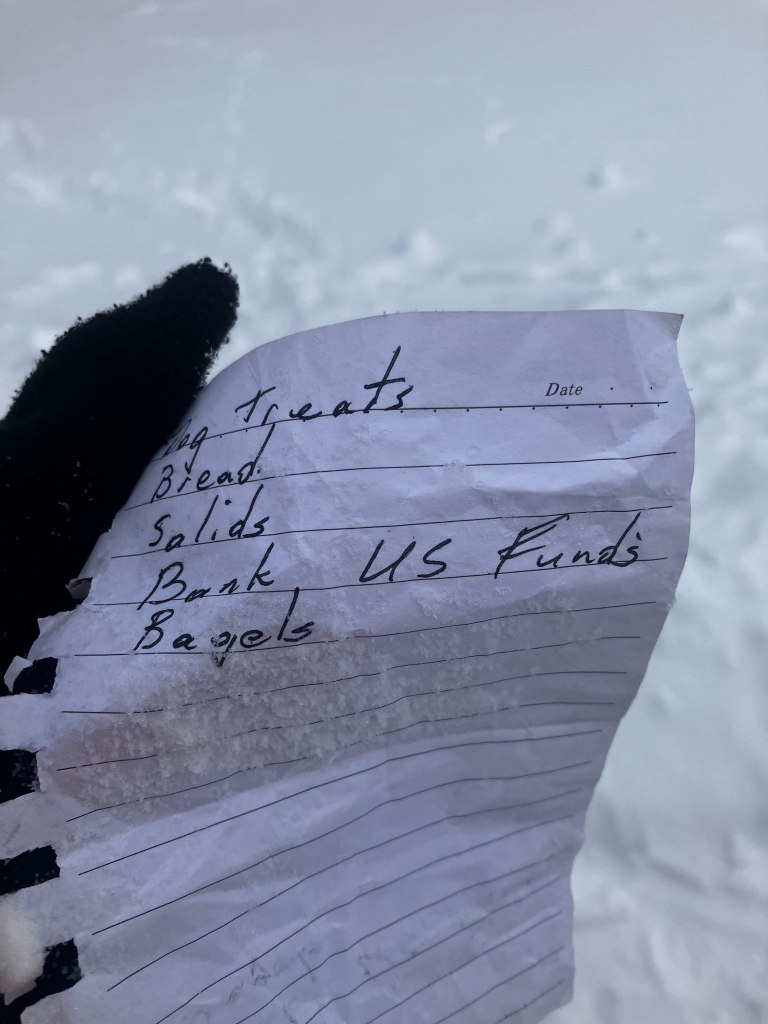 Date
Dog Treats
Bread
Salids
Bank US Funds
Bagels